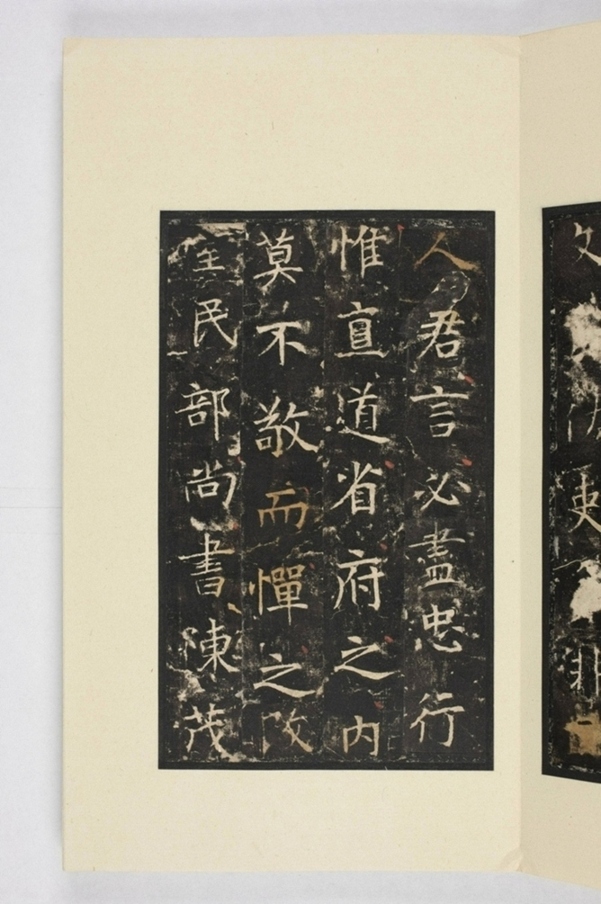 人君言必盡忠行
惟直道省府之内
莫不敬而憚之改
民部尚書陳茂